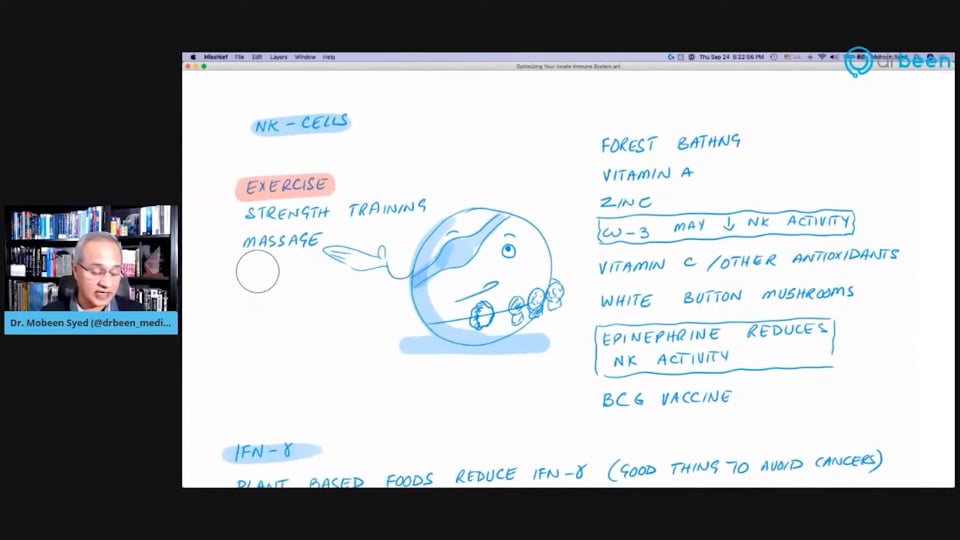 drbeen
Mischief File Edit Layers Window Help
Thu Sep 24 6:22:56 PM
Optimizing Your Innate Immune System.art
NK - CELLS
EXERCISE
STRENGTH TRAINING
MASSAGE
FOREST BATHNG
VITAMIN A
ZINC
ω-3 MAY ↓ NK ACTIVITY
VITAMIN C / OTHER ANTIOXIDANTS
WHITE BUTTON MUSHROOMS
EPINEPHRINE REDUCES
NK ACTIVITY
BCG VACCINE
Dr. Mobeen Syed (@drbeen_medi...
IFN-γ
PLANT BASED FOODS REDUCE IFN-γ (GOOD THING TO AVOID CANCERS)